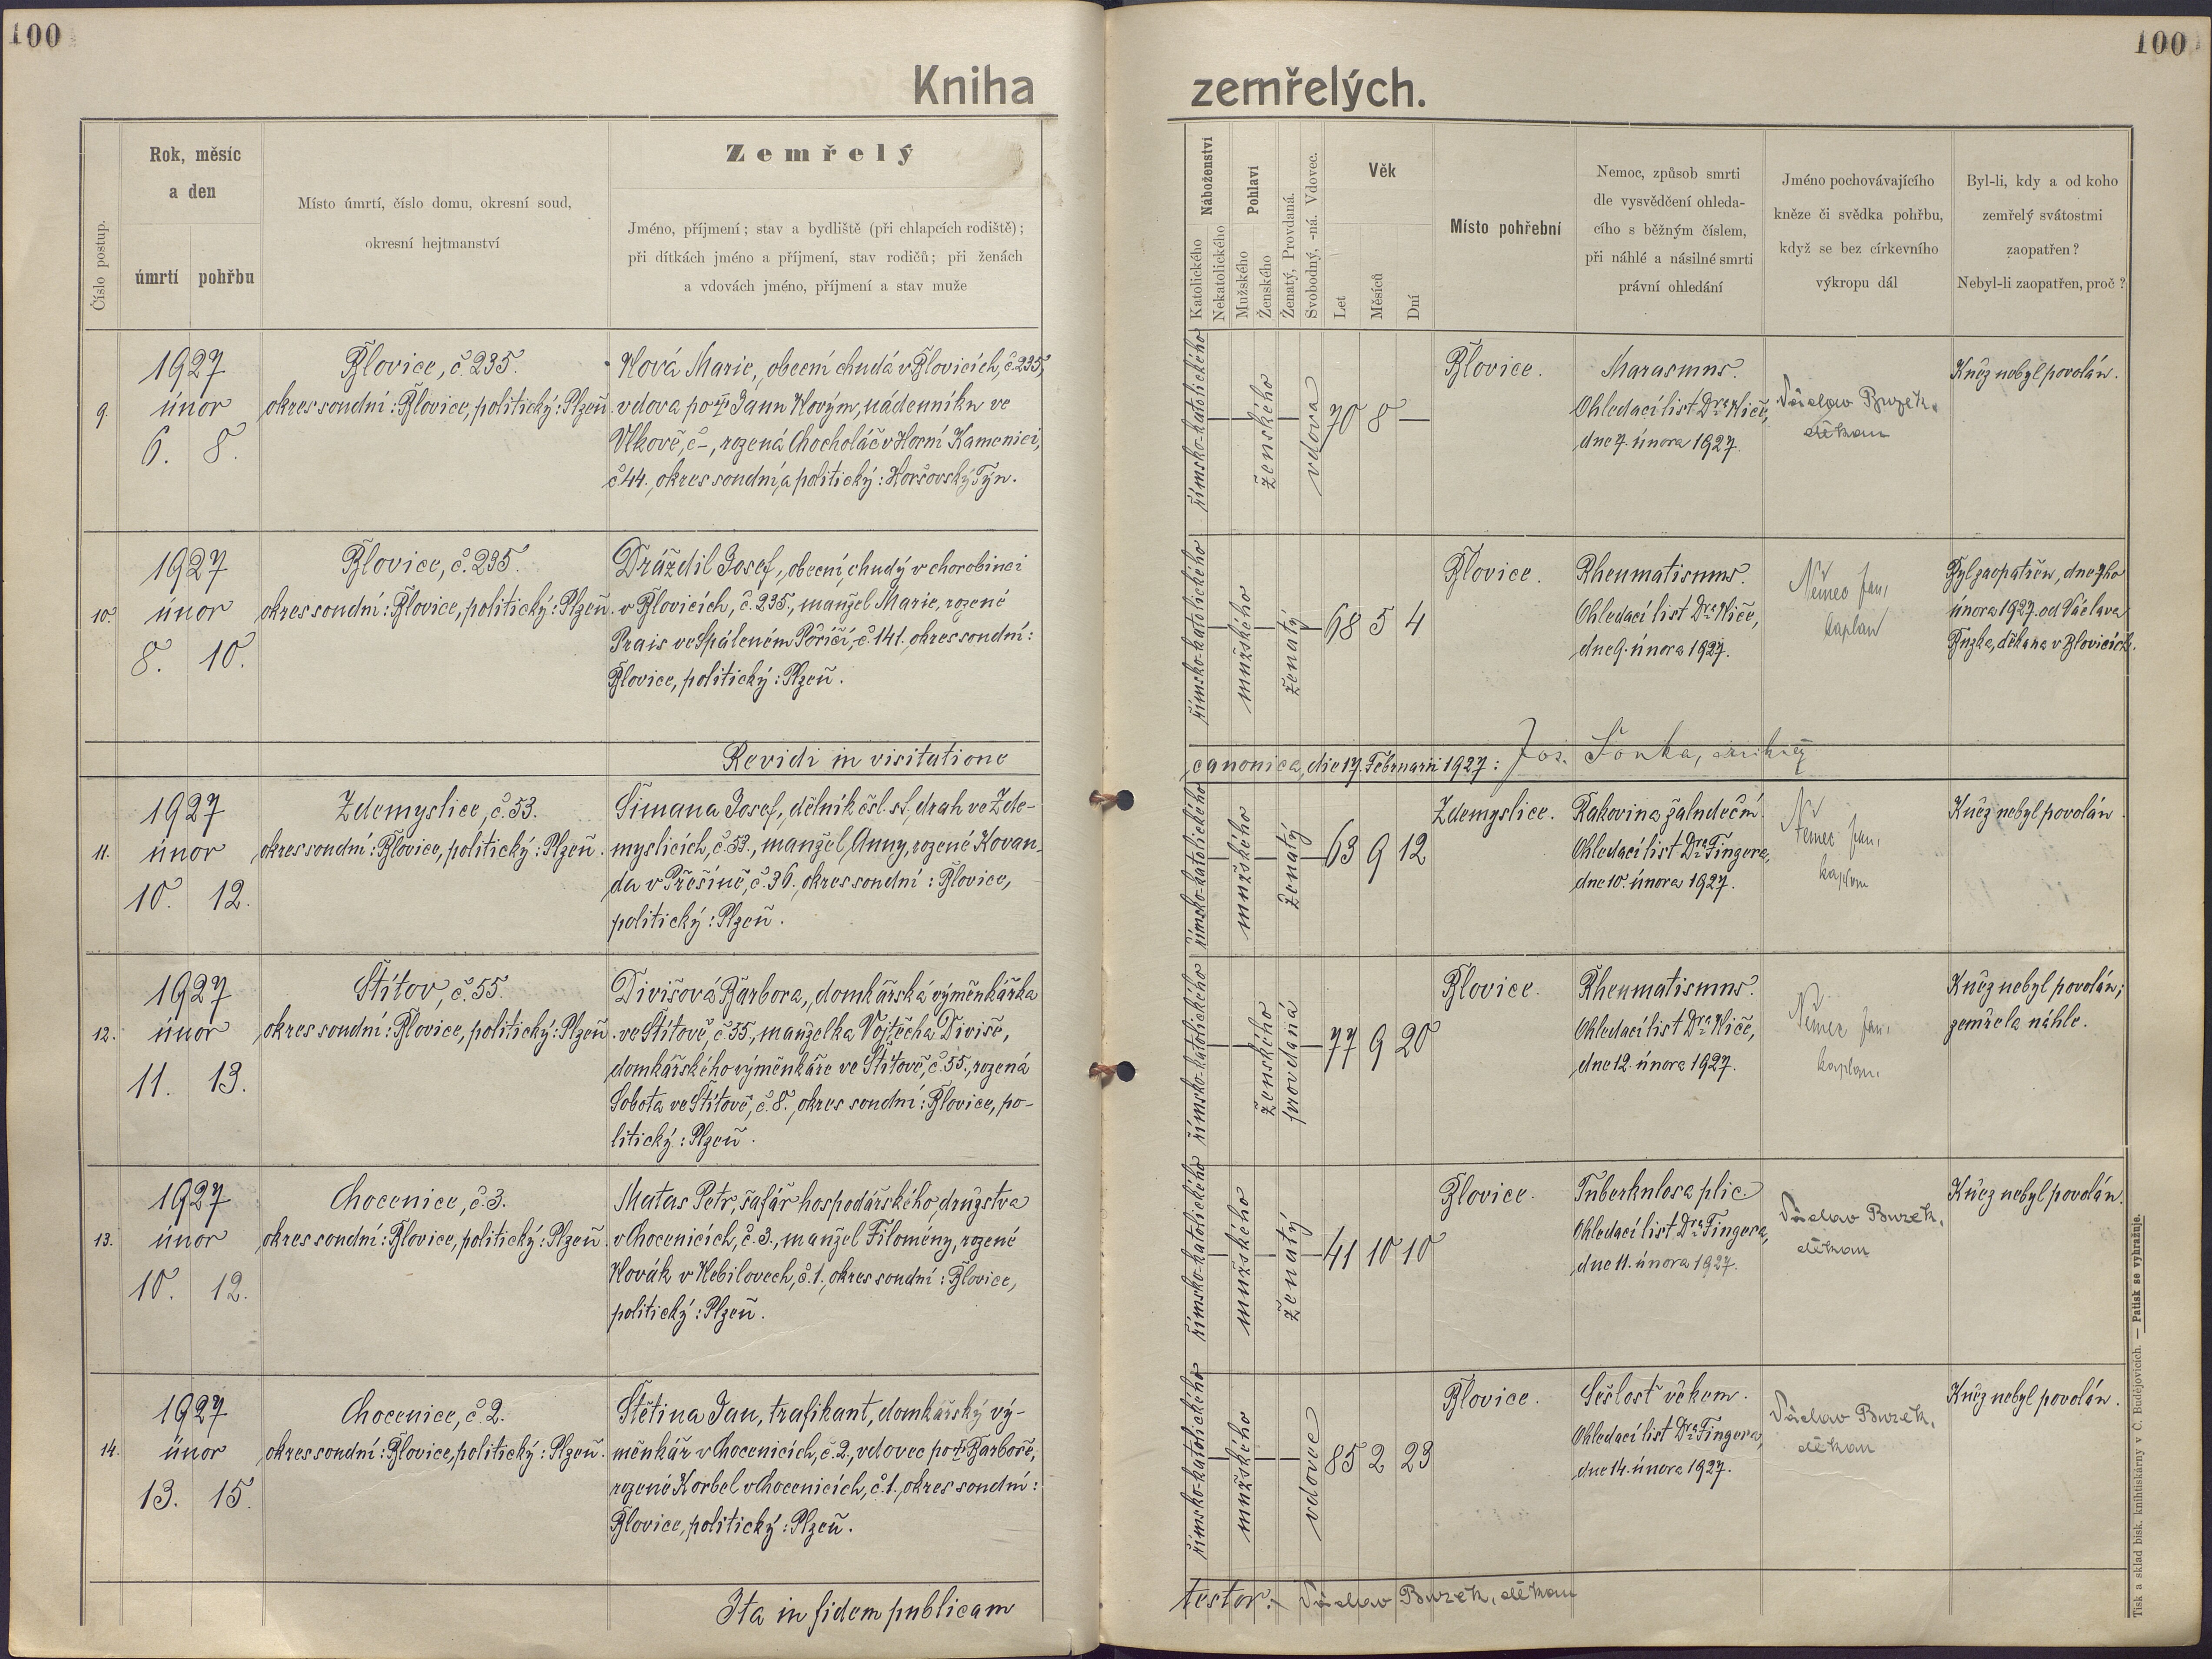 100
100
Kniha zemřelých.
Číslo postup.
Rok, měsíc
a den
úmrtí pohřbu
Místo úmrtí, číslo domu, okresní soud,
okresní hejtmanství
Zemřelý
Jméno, příjmení; stav a bydliště (při chlapcích rodiště);
při dítkách jméno a příjmení, stav rodičů; při ženách
a vdovách jméno, příjmení a stav muže
Náboženství
Katolického
Nekatolického
Pohlaví
Mužského
Ženského
Ženatý, Provdaná.
Svobodný, -ná. Vdovec.
Věk
Let
Měsíců
Dní
Místo pohřební
Nemoc, způsob smrti
dle vysvědčení ohleda-
cího s běžným číslem,
při náhlé a násilné smrti
právní ohledání
Jméno pochovávajícího
kněze či svědka pohřbu,
když se bez církevního
výkropu dál
Byl-li, kdy a od koho
zemřelý svátostmi
zaopatřen?
Nebyl-li zaopatřen, proč?
9.
1927
únor
6. 8.
Blovice, č. 235.
okres soudní: Blovice, politický: Plzeň.
Nová Marie, obecní chudá v Blovicích, č. 235,
vdova po † Janu Novým, nádenníku ve
Vlkově, č –, rozená Chocholáč v Horní Kamenici,
č 44., okres soudní a politický: Horšovský Týn.
římsko-katolického
ženského
vdova
70 8 —
Blovice.
Marasmus.
Ohledací list Dra Niče,
dne 7. února 1927.
Václav Buzek,
děkan
Kněz nebyl povolán.
10.
1927
únor
8. 10.
Blovice, č. 235.
okres soudní: Blovice, politický: Plzeň.
Dráždil Josef, obecní chudý v chorobinci
v Blovicích, č. 235., manžel Marie, rozené
Prais ve Spáleném Poříčí, č. 141. okres soudní:
Blovice, politický: Plzeň.
římsko-katolického
mužského
ženatý
68 5 4
Blovice.
Rheumatismus.
Ohledací list Dra Niče,
dne 9. února 1927.
Němec Jan,
kaplan
Byl zaopatřen, dne 7ho
února 1927. od Václava
Buzka, děkana v Blovicích.
Revidi in visitatione
canonica, die 17. Februarii 1927: Jos. Šonka,
11.
1927
únor
10. 12.
Zdemyslice, č. 53.
okres soudní: Blovice, politický: Plzeň.
Šimana Josef, dělník čsl. st. drah ve Zde-
myslicích, č. 53., manžel Anny, rozené Kovan-
da v Přešíně, č. 36., okres soudní: Blovice,
politický: Plzeň.
římsko-katolického
mužského
ženatý
63 9 12
Zdemyslice.
Rakovina žaludeční.
Ohledací list Dra Fingera,
dne 10. února 1927.
Němec Jan,
kaplan
Kněz nebyl povolán
12.
1927
únor
11. 13.
Štítov, č. 55.
okres soudní: Blovice, politický: Plzeň.
Divišová Barbora, domkářská výměnkářka
ve Štítově, č. 55., manželka Vojtěcha Diviše,
domkářského výměnkáře ve Štítově, č. 55., rozená
Sobota ve Štítově, č. 8., okres soudní: Blovice, po-
litický: Plzeň.
římsko-katolického
ženského
provdaná
77 9 20
Blovice.
Rheumatismus.
Ohledací list Dra Niče,
dne 12. února 1927.
Němec Jan,
kaplan.
Kněz nebyl povolán;
zemřela náhle.
13.
1927
únor
10. 12.
Chocenice, č. 3.
okres soudní: Blovice, politický: Plzeň.
Matas Petr, šafář hospodářského družstva
v Chocenicích, č. 3., manžel Filomény, rozené
Novák v Nebilovech, č. 1., okres soudní: Blovice,
politický: Plzeň.
římsko-katolického
mužského
ženatý
41 10 10
Blovice.
Tuberkulosa plic.
Ohledací list Dra Fingera,
dne 11. února 1927.
Václav Buzek,
děkan
Kněz nebyl povolán.
14.
1927
únor
13. 15.
Chocenice, č. 2.
okres soudní: Blovice, politický: Plzeň.
Štětina Jan, trafikant, domkářský vý-
měnkář v Chocenicích, č. 2., vdovec po † Barboře,
rozené Korbel v Chocenicích, č. 1., okres soudní:
Blovice, politický: Plzeň.
římsko-katolického
mužského
vdovec
85 2 23
Blovice.
Sešlost věkem.
Ohledací list Dra Fingera,
dne 14. února 1927.
Václav Buzek,
děkan
Kněz nebyl povolán.
Ita in fidem publicam
testor:– Václav Buzek, děkan
Tisk a sklad bisk. knihtiskárny v Č. Budějovicích. — Patisk se vyhražuje.